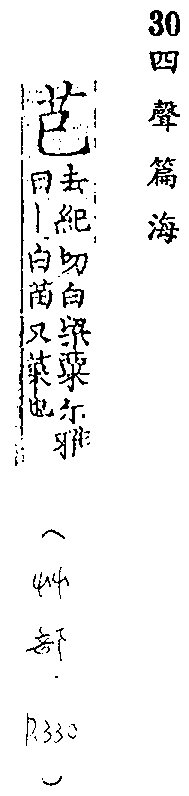 30四聲篇海
芑
去紀切白粱粟尔雅
曰丨白苗又菜也
(艸部.P.330)